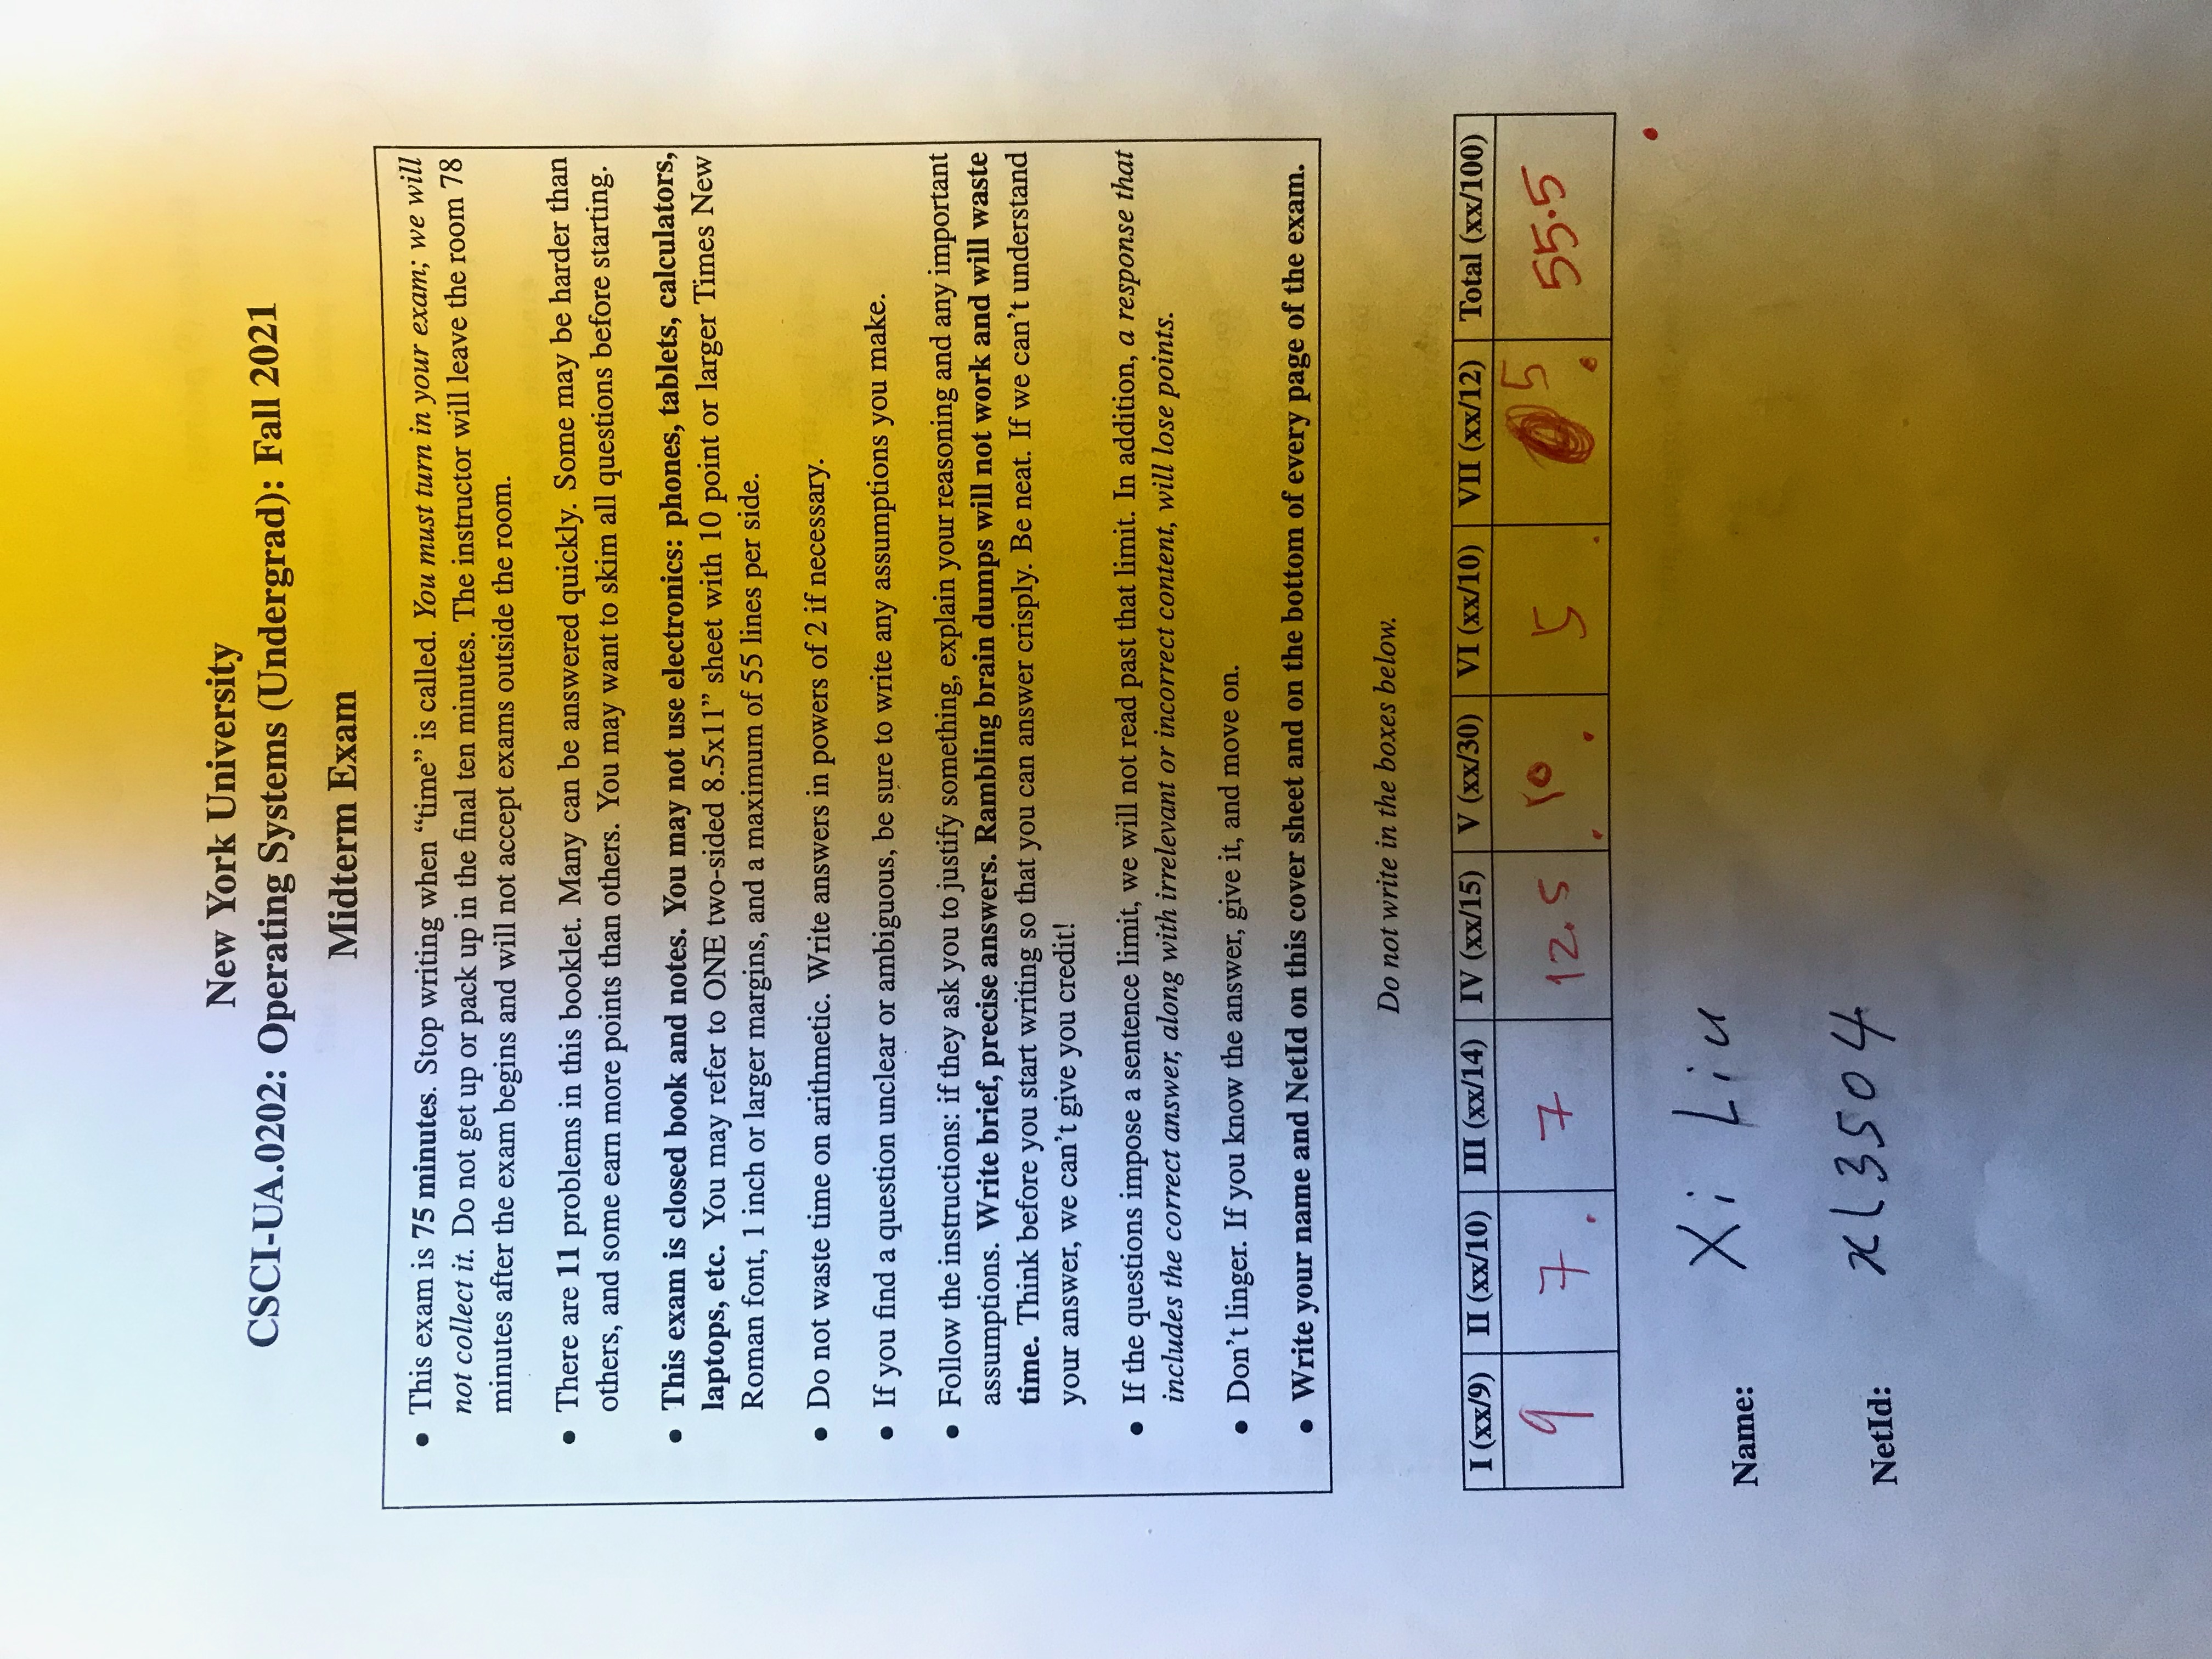 New York University
CSCI-UA.0202: Operating Systems (Undergrad): Fall 2021
Midterm Exam
• This exam is 75 minutes. Stop writing when “time” is called. You must turn in your exam; we will
not collect it. Do not get up or pack up in the final ten minutes. The instructor will leave the room 78
minutes after the exam begins and will not accept exams outside the room.
• There are 11 problems in this booklet. Many can be answered quickly. Some may be harder than
others, and some earn more points than others. You may want to skim all questions before starting.
• This exam is closed book and notes. You may not use electronics: phones, tablets, calculators,
laptops, etc. You may refer to ONE two-sided 8.5x11” sheet with 10 point or larger Times New
Roman font, 1 inch or larger margins, and a maximum of 55 lines per side.
• Do not waste time on arithmetic. Write answers in powers of 2 if necessary.
• If you find a question unclear or ambiguous, be sure to write any assumptions you make.
• Follow the instructions: if they ask you to justify something, explain your reasoning and any important
assumptions. Write brief, precise answers. Rambling brain dumps will not work and will waste
time. Think before you start writing so that you can answer crisply. Be neat. If we can’t understand
your answer, we can’t give you credit!
• If the questions impose a sentence limit, we will not read past that limit. In addition, a response that
includes the correct answer, along with irrelevant or incorrect content, will lose points.
• Don’t linger. If you know the answer, give it, and move on.
• Write your name and NetId on this cover sheet and on the bottom of every page of the exam.
Do not write in the boxes below.
I (xx/9) II (xx/10) III (xx/14) IV (xx/15) V (xx/30) VI (xx/10) VII (xx/12) Total (xx/100)
9 7 7 12.5 10 5 5 55.5
Name: Xi Liu
NetId: xl3504